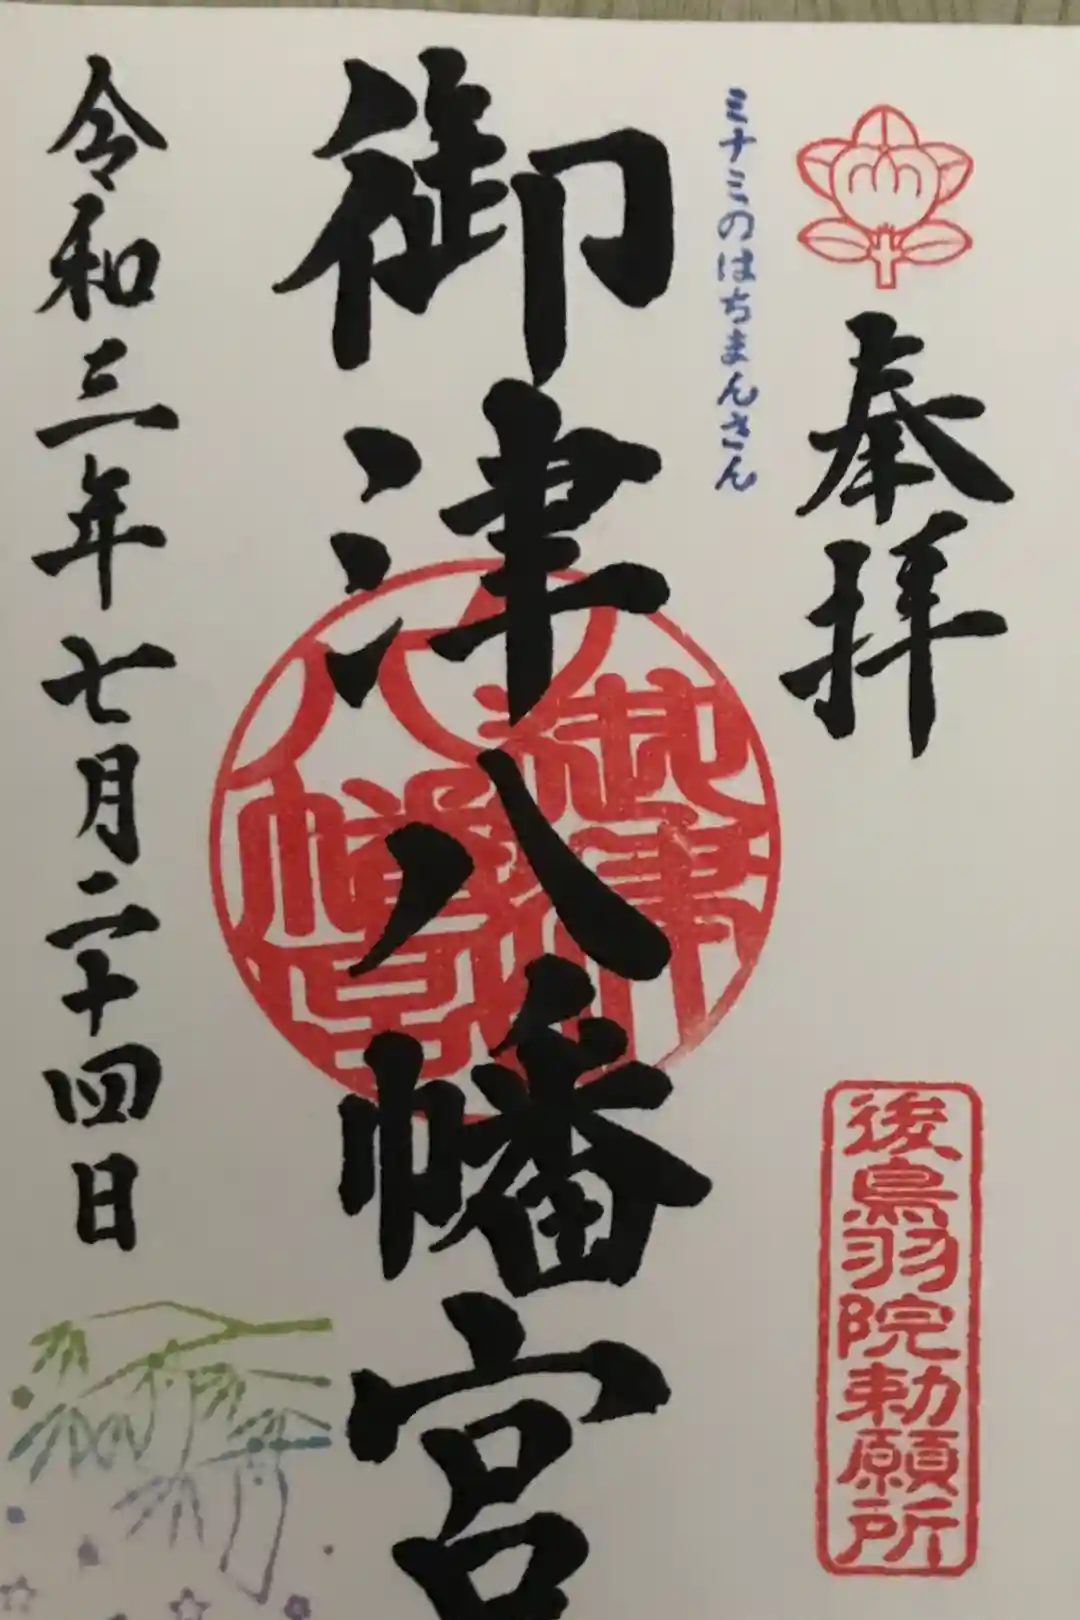 奉拝
後鳥羽院勅願所
ミナミのはちまんさん
御津八幡宮
御津
八幡宮
令和三年七月二十四日